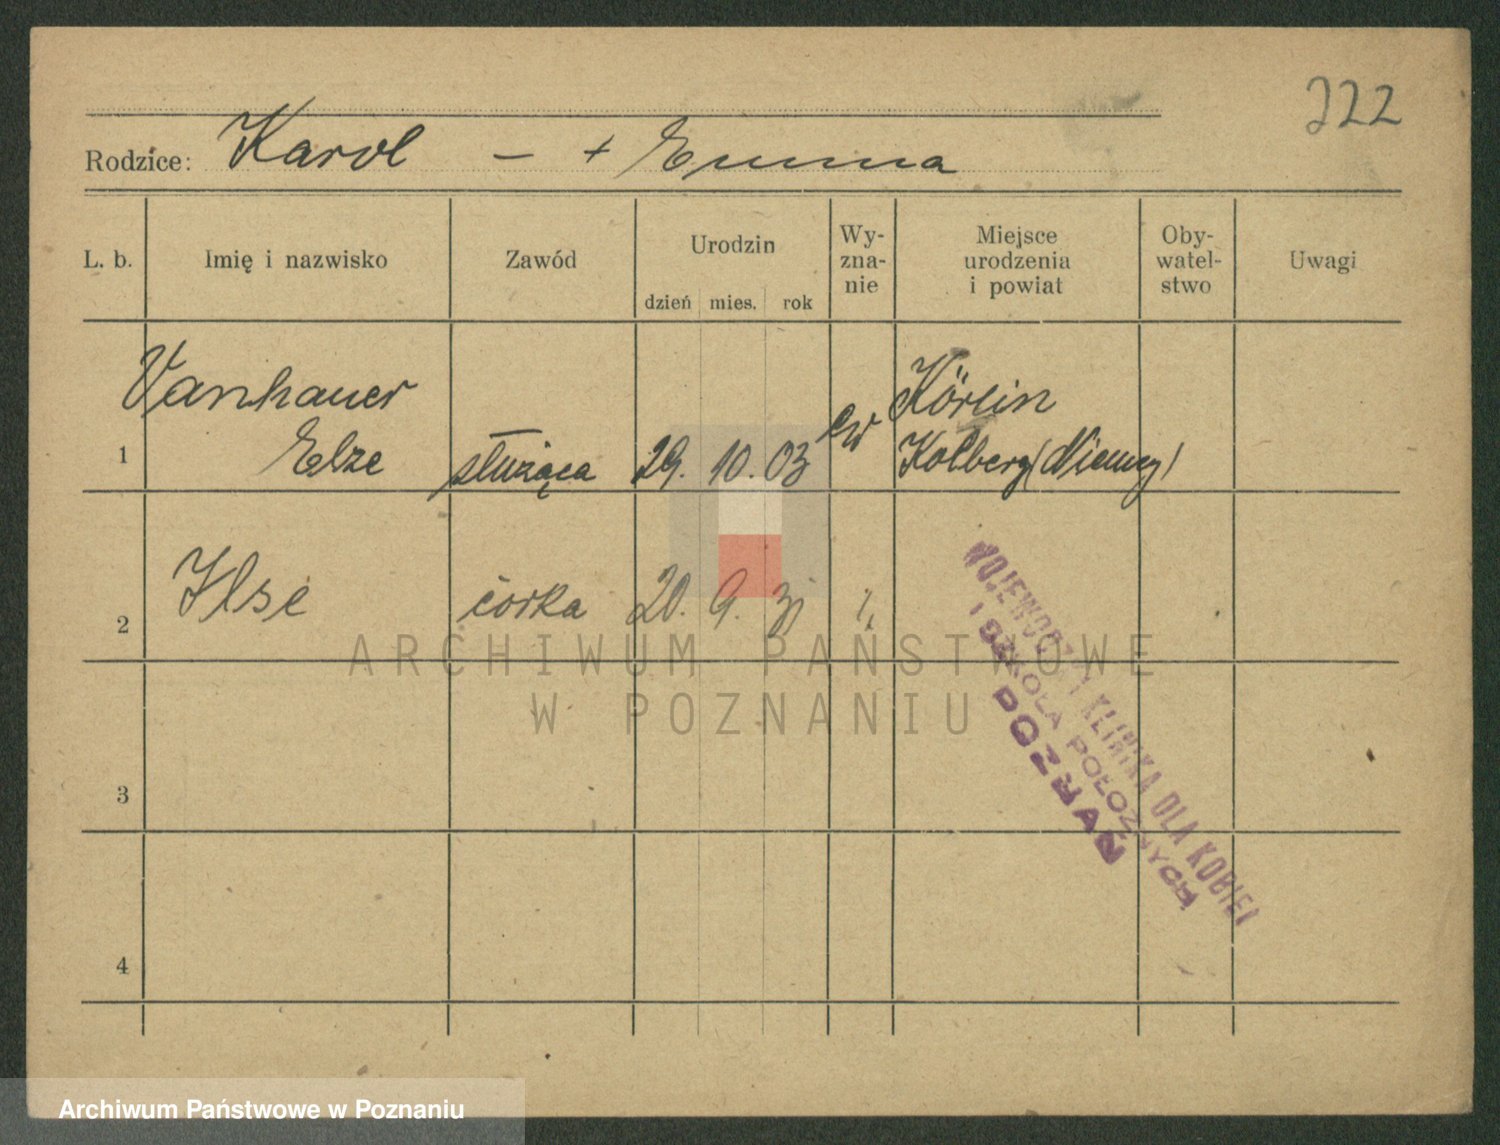 222
Rodzice: Karol — + Emma
L. b. Imię i nazwisko Zawód Urodzin Wy-zna-nie Miejsce urodzenia i powiat Oby-watel-stwo Uwagi
dzień mies. rok
Vanhauer Körlin
1 Elze służąca 29. 10. 03 ew Kolberg (Niemcy)
2 Ilse córka 20. 9. 31 "
3
4
WOJEWÓDZKA KLINIKA DLA KOBIET
I SZKOŁA POŁOŻNYCH
POZNAŃ
ARCHIWUM PAŃSTWOWE
W POZNANIU
Archiwum Państwowe w Poznaniu